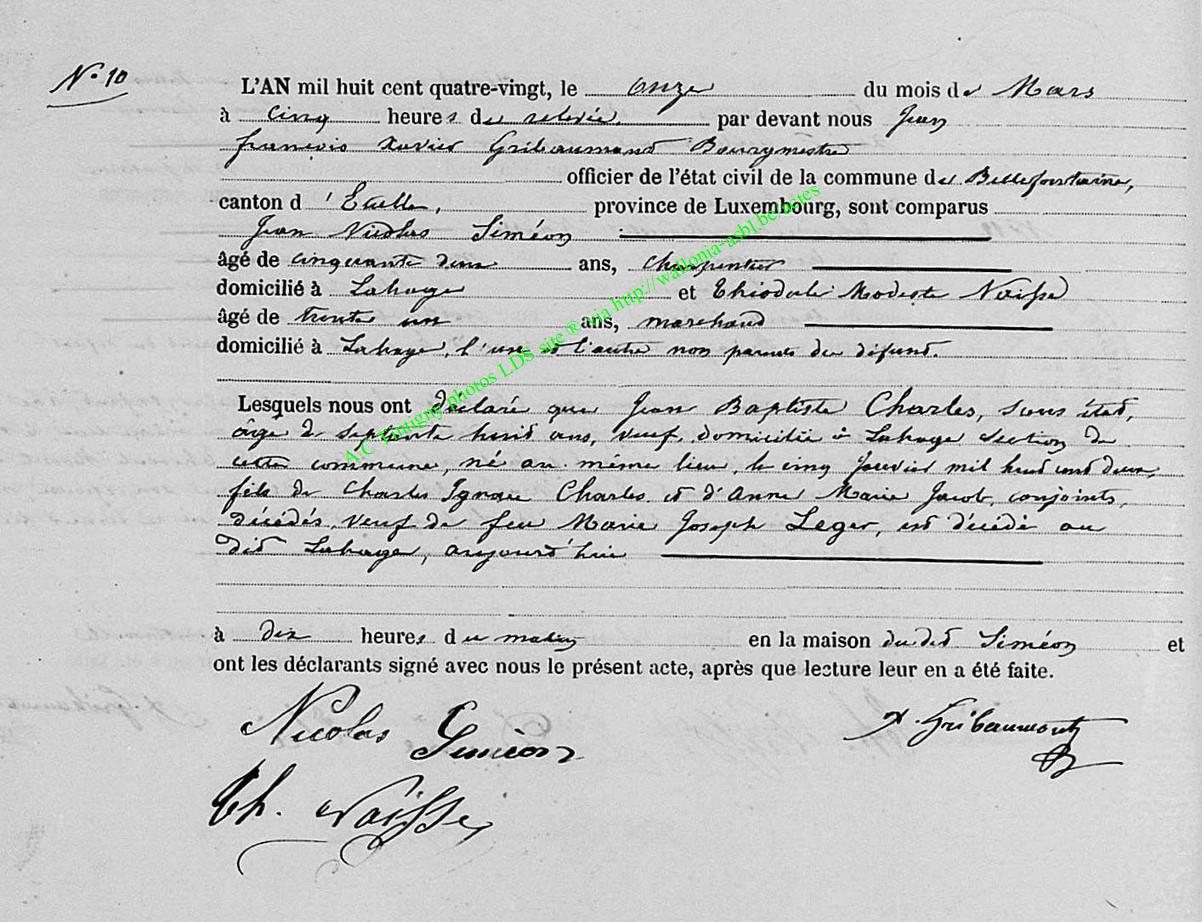 N.º 10
L'AN mil huit cent quatre-vingt, le onze du mois de Mars
à cinq heures de relevée par devant nous Jean
françois Xavier Gribaumont Bourgmestre
officier de l'état civil de la commune de Bellefontaine,
canton d'Etalle, province de Luxembourg, sont comparus
Jean Nicolas Siméon
âgé de cinquante deux ans, charpentier
domicilié à Lahage et Théodule Modeste Naisse
âgé de trente un ans, marchand
domicilié à Lahage, l'un et l'autre non parents du défunt.
Lesquels nous ont déclaré que Jean Baptiste Charles, sans état,
âgé de septante huit ans, veuf, domicilié à Lahage section de
cette commune, né au même lieu, le cinq janvier mil huit cent deux,
fils de Charles Ignace Charles et d'Anne Marie Jacob, conjoints,
décédés, veuf de feu Marie Joseph Leger, est décédé au
dit Lahage, aujourd'hui
à dix heures du matin en la maison du dit Siméon et
ont les déclarants signé avec nous le présent acte, après que lecture leur en a été faite.
Nicolas Simeon
X. Gribaumont
Th. Naisse
A.C Tintigny photos LDS site ® via http://wallonia-asbl.be/actes